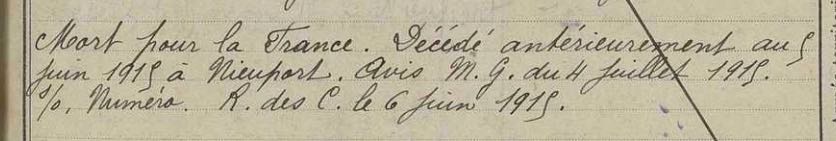 Mort pour la France. Décédé antérieurement au 5
juin 1915 à Nieuport. Avis M. G. du 4 juillet 1915.
s/o, Numéro. R. des C. le 6 juin 1915.